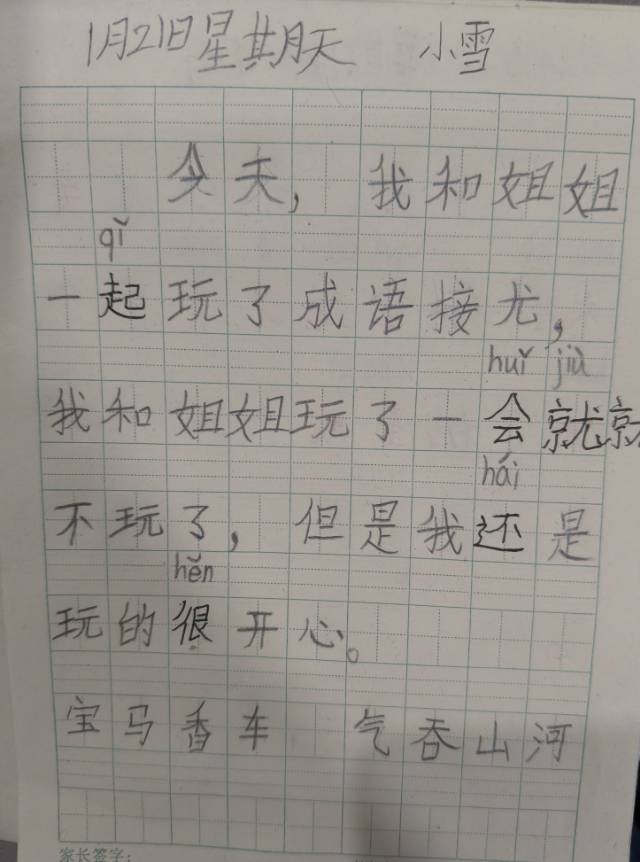 1月21日星期天 小雪
今天，我和姐姐
qǐ
一起玩了成语接尤，
huǐ jiù
我和姐姐玩了一会就就
hái
不玩了，但是我还是
hěn
玩的很开心。
宝马香车 气吞山河
家长签字：